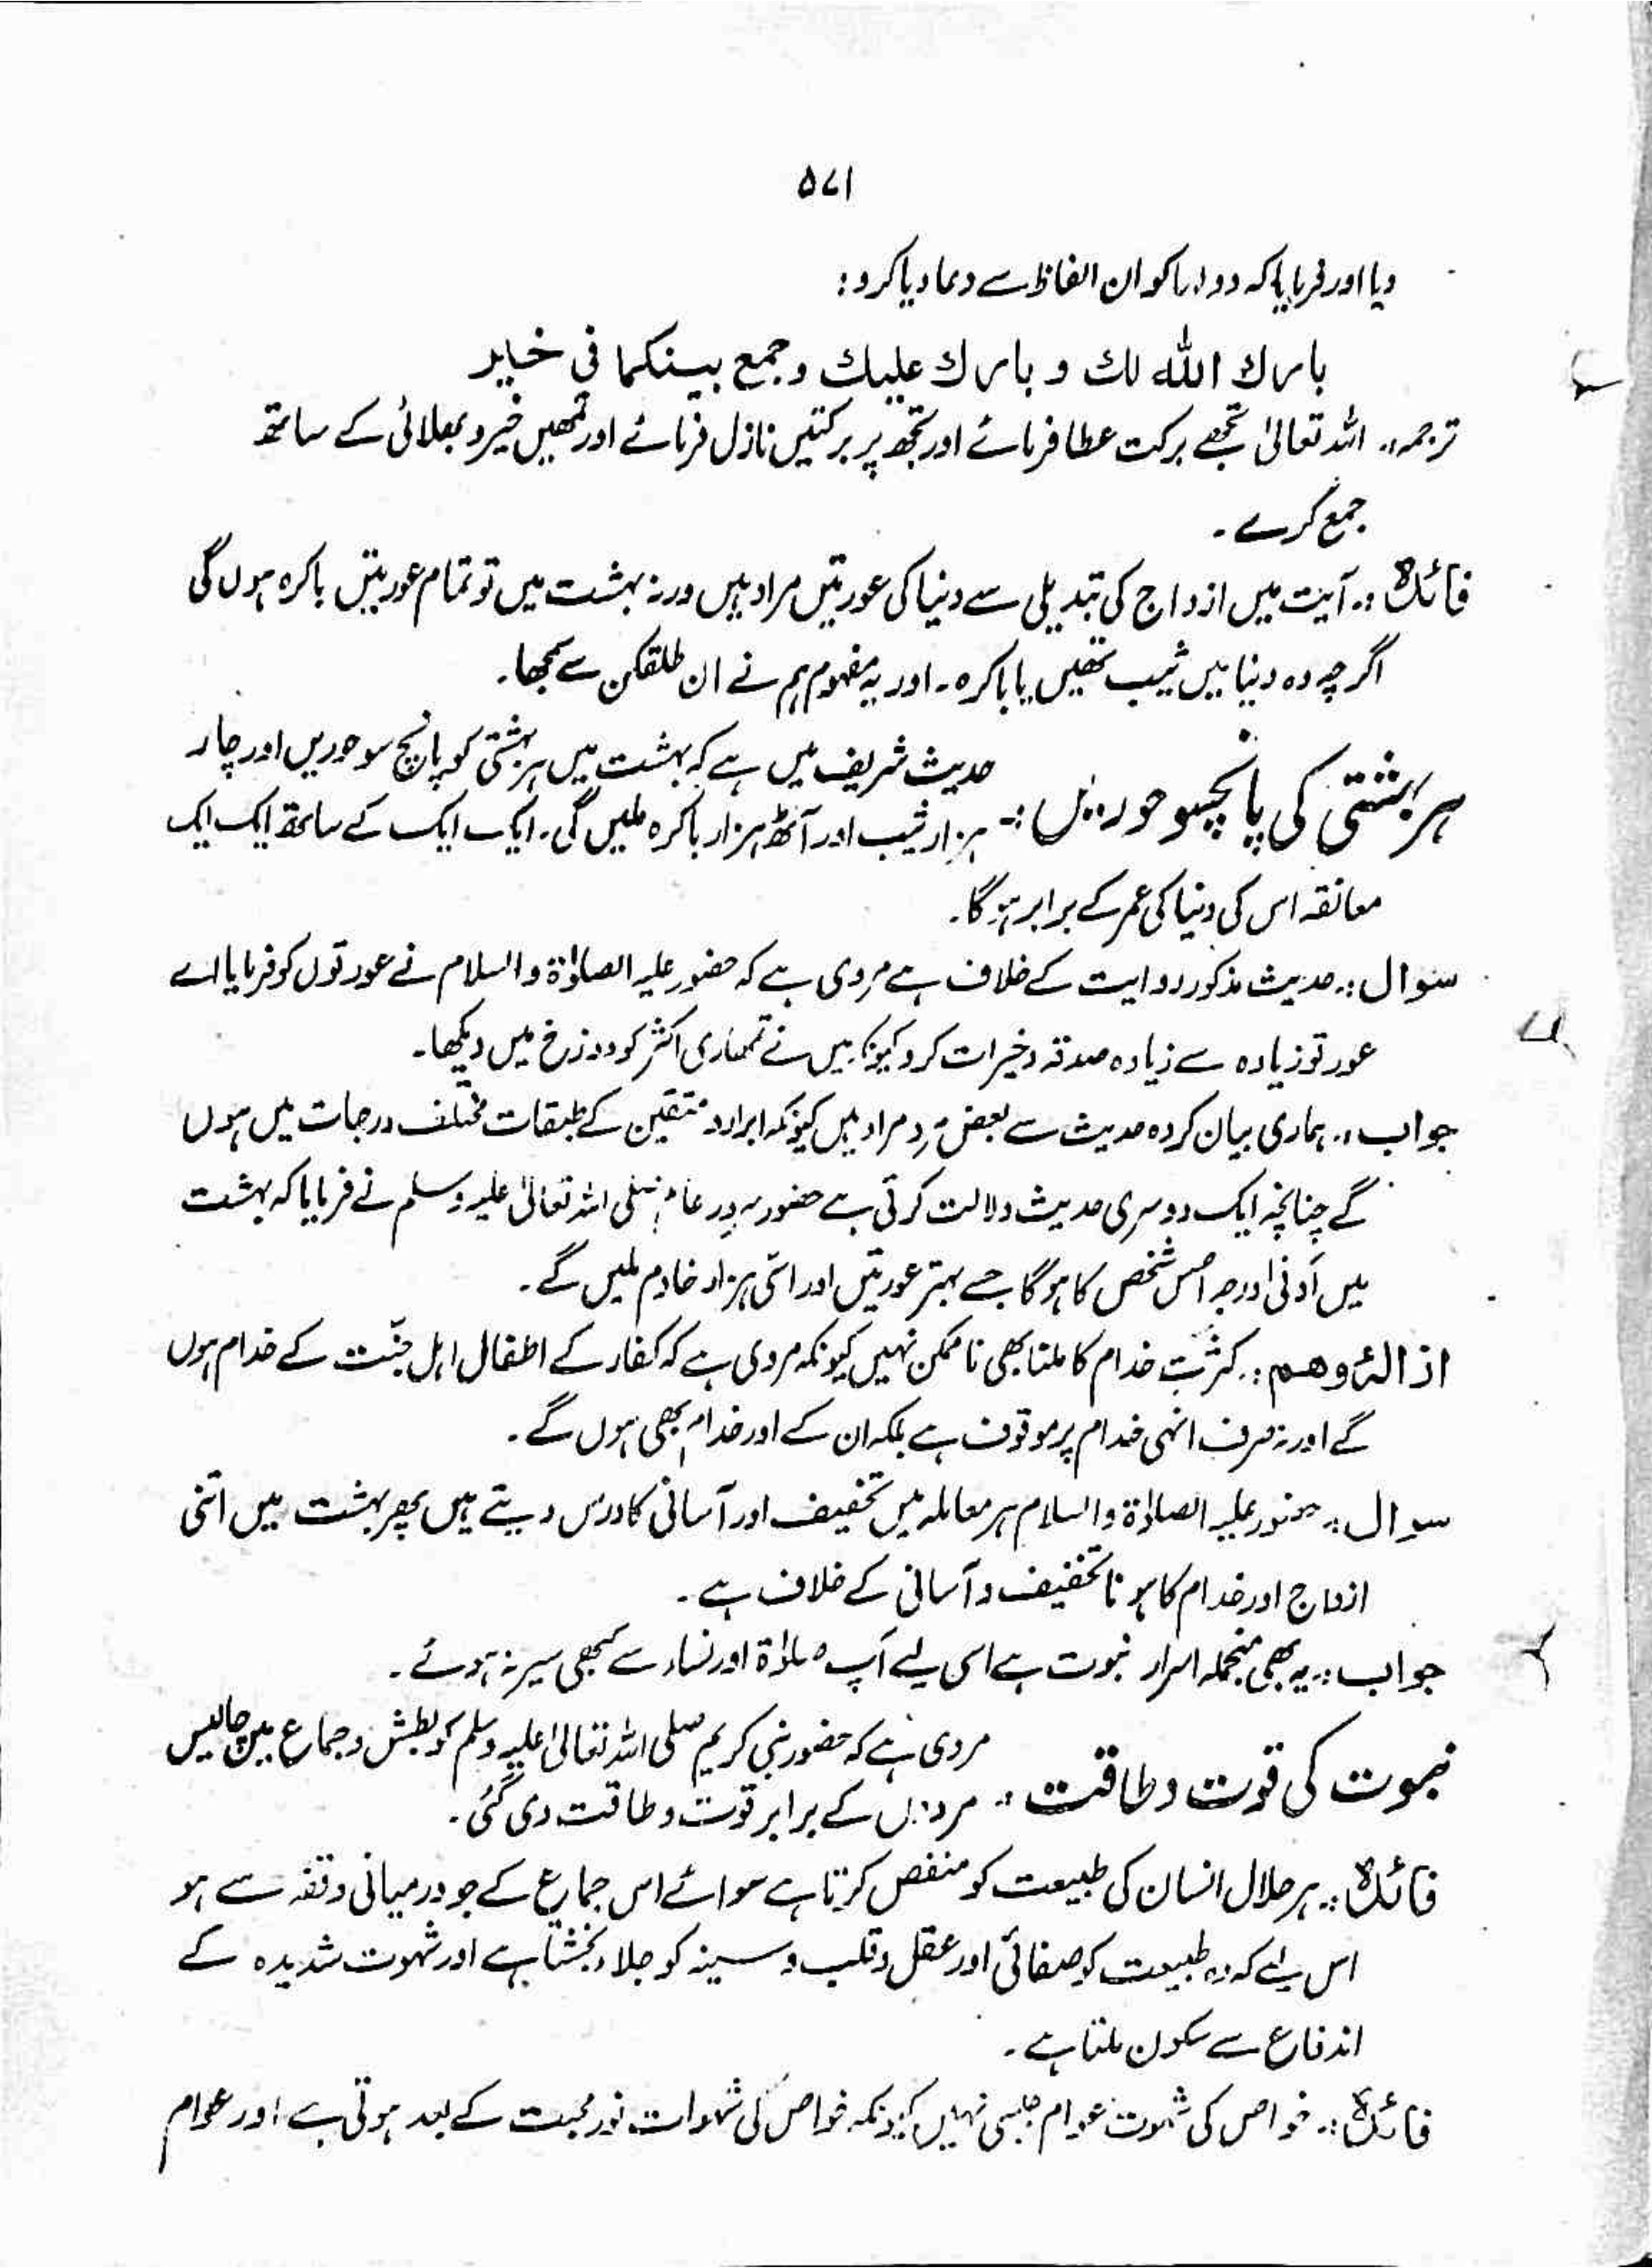 ۵۷۱
دیا اور فرمایا کہ دولہا کو ان الفاظ سے دعا دیا کرو:
بارك الله لك و بارك عليك وجمع بينكما فى خير
ترجمہ:۔ اللہ تعالیٰ تجھے برکت عطا فرمائے اور تجھ پر برکتیں نازل فرمائے اور تمھیں خیر و بھلائی کے ساتھ
جمع کرے۔
فائدہ:۔ آیت میں ازواج کی تبدیلی سے دنیا کی عورتیں مراد ہیں ورنہ بہشت میں تو تمام عورتیں باکرہ ہوں گی
اگرچہ وہ دنیا میں ثیب تھیں یا باکرہ۔ اور یہ مفہوم ہم نے ان طلقکن سے سمجھا۔
ہر بہشتی کی پانچسو حوریں:۔ حدیث شریف میں ہے کہ بہشت میں ہر بہشتی کو پانچ سو حوریں اور چار
ہزار ثیب اور آٹھ ہزار باکرہ ملیں گی۔ ایک ایک کے ساتھ ایک ایک
معانقہ اس کی دنیا کی عمر کے برابر ہوگا۔
سوال:۔ حدیث مذکور روایت کے خلاف ہے مروی ہے کہ حضور علیہ الصلوٰۃ والسلام نے عورتوں کو فرمایا اے
عورتو زیادہ سے زیادہ صدقہ و خیرات کرو کیونکہ میں نے تمہاری اکثر کو دوزخ میں دیکھا۔
جواب:۔ ہماری بیان کردہ حدیث سے بعض مرد مراد ہیں کیونکہ ابرار و متقین کے طبقات مختلف درجات میں ہوں
گے چنانچہ ایک دوسری حدیث دلالت کرتی ہے حضور سرور عالم صلی اللہ تعالیٰ علیہ وسلم نے فرمایا کہ بہشت
میں ادنیٰ درجہ اس شخص کا ہوگا جسے بہتر عورتیں اور اسّی ہزار خادم ملیں گے۔
ازالۂ وہم:۔ کثرتِ خدام کا ملنا بھی ناممکن نہیں کیونکہ مروی ہے کہ کفار کے اطفال اہل جنّت کے خدام ہوں
گے اور نہ صرف انہی خدام پر موقوف ہے بلکہ ان کے اور خدام بھی ہوں گے۔
سوال:۔ حضور علیہ الصلوٰۃ والسلام ہر معاملہ میں تخفیف اور آسانی کا درس دیتے ہیں پھر بہشت میں اتنی
ازواج اور خدام کا ہونا تخفیف و آسانی کے خلاف ہے۔
جواب:۔ یہ بھی منجملہ اسرار نبوت ہے اسی لیے آپ صلوٰۃ اور نساء سے کبھی سیر نہ ہوئے۔
نبوت کی قوت و طاقت:۔ مروی ہے کہ حضور نبی کریم صلی اللہ تعالیٰ علیہ وسلم کو بطش و جماع میں چالیس
مردوں کے برابر قوت و طاقت دی گئی۔
فائدہ:۔ ہر حلال انسان کی طبیعت کو منغص کرتا ہے سوائے اس جماع کے جو درمیانی وقفہ سے ہو
اس لیے کہ وہ طبیعت کو صفائی اور عقل و قلب و سینہ کو جلاء بخشتا ہے اور شہوت شدیدہ کے
اندفاع سے سکون ملتا ہے۔
فائدہ:۔ خواص کی شہوت عوام جیسی نہیں کیونکہ خواص کی شہوات نور محبت کے بعد ہوتی ہے اور عوام